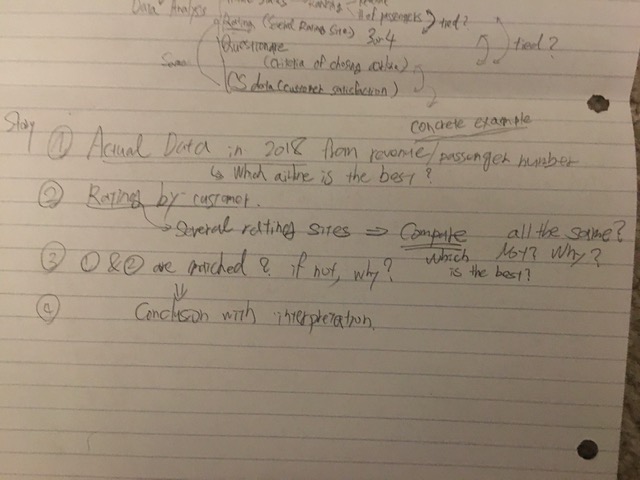 Data Analysis
# of passengers tied?
Rating (Social Rating Sites) 3 or 4
tied?
Questionnare
(Criteria of chosing airline)
Same
CS data (customer satisfaction)
concrete example
Story
① Actual Data in 2018 from revenue/passenger number
↳ Which airline is the best?
② Rating by customer.
→ Several rating sites ⇒ Compare all the same?
which Not? Why?
is the best?
③ ① & ② are matched? if not, why?
⇓
④ Conclusion with interpretation.